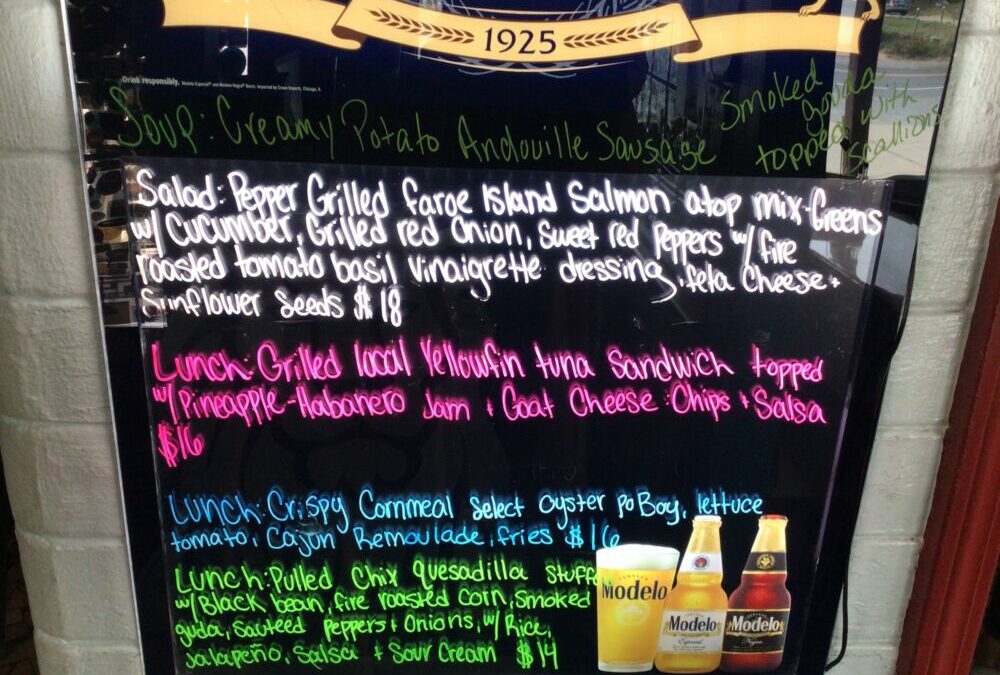 1925
Drink responsibly.
Soup: Creamy Potato Andouville Sausage
Smoked
gouda
topped with
scallions
Salad: Pepper Grilled faroe Island Salmon atop mix-Greens
w/ Cucumber, Grilled red Onion, Sweet red Peppers w/ fire
roasted tomato basil vinaigrette dressing, feta Cheese +
Sunflower Seeds $18
Lunch: Grilled local Yellowfin tuna Sandwich topped
w/ Pineapple-Habanero Jam + Goat Cheese Chips + Salsa
$16
Lunch: Crispy Cornmeal Select Oyster po Boy, lettuce
tomato, Cajun Remoulade, fries $16
Lunch: Pulled Chix quesadilla Stuff
w/ Black bean, fire roasted Corn, Smoked
guda, Sauteed Peppers + Onions, w/ Rice,
Jalapeño, Salsa + Sour Cream $14
Modelo
Modelo
Especial
Modelo
Negra